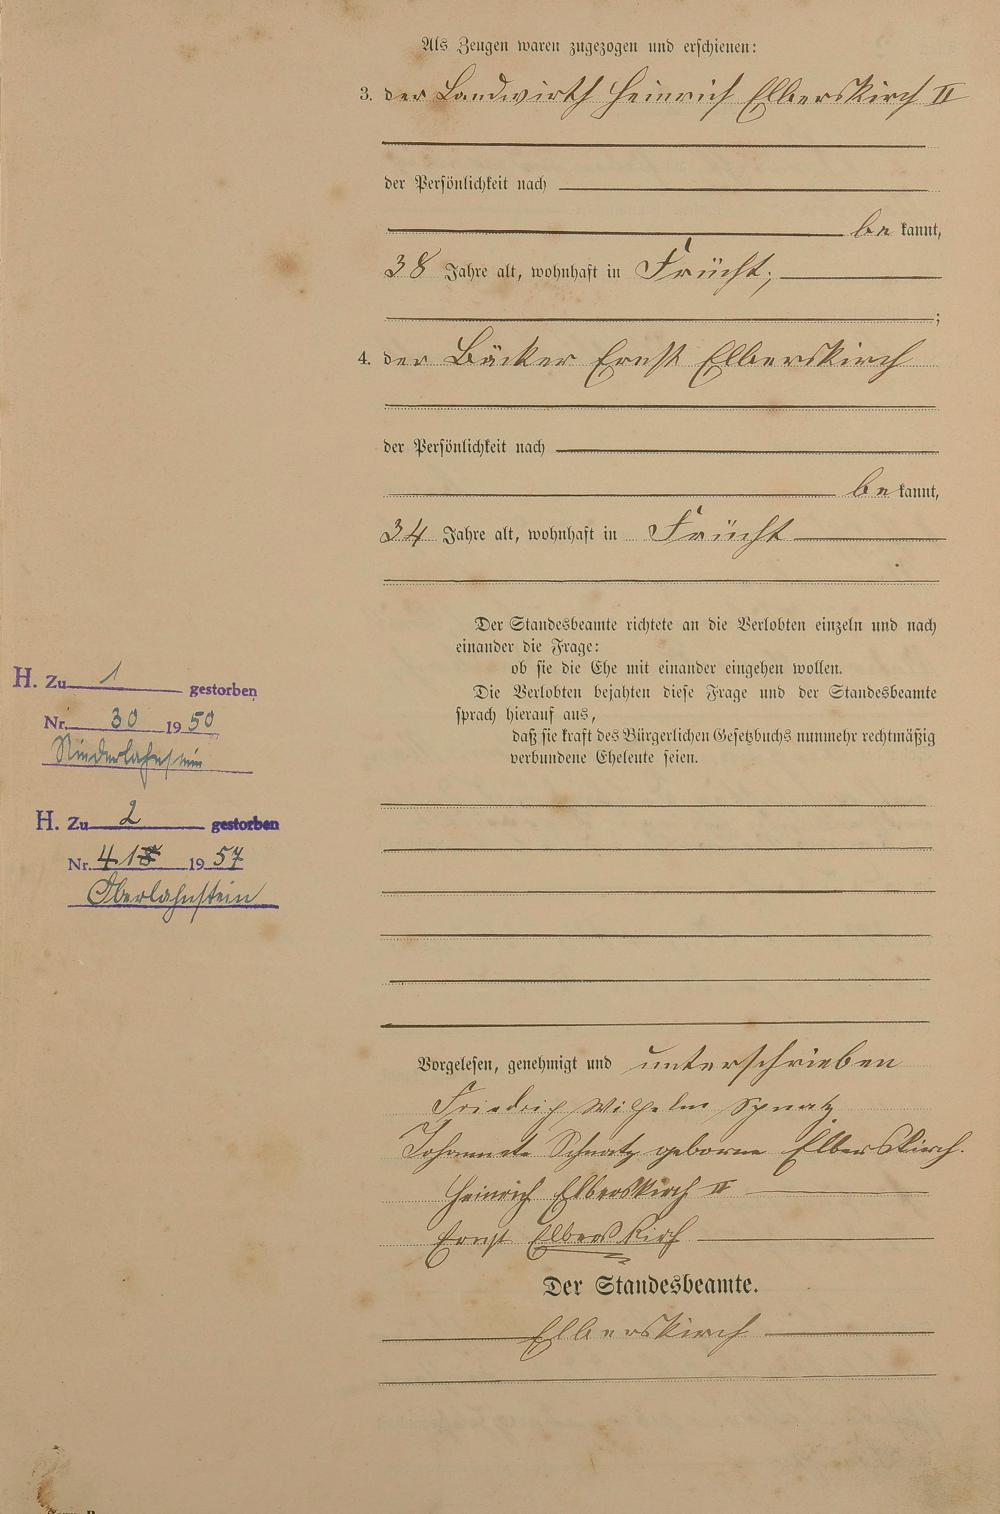 Als Zeugen waren zugezogen und erschienen:
3. der Landwirth Heinrich Elberskirch II
der Persönlichkeit nach
be kannt,
38 Jahre alt, wohnhaft in Frücht;
;
4. der Bäcker Ernst Elberskirch
der Persönlichkeit nach
be kannt,
34 Jahre alt, wohnhaft in Frücht
Der Standesbeamte richtete an die Verlobten einzeln und nach
einander die Frage:
ob sie die Ehe mit einander eingehen wollen.
Die Verlobten bejahten diese Frage und der Standesbeamte
sprach hierauf aus,
daß sie kraft des Bürgerlichen Gesetzbuchs nunmehr rechtmäßig
verbundene Eheleute seien.
H. Zu 1 gestorben
Nr. 30 19 50
Niederlahnstein
H. Zu 2 gestorben
Nr. 41 19 57
Oberlahnstein
Vorgelesen, genehmigt und unterschrieben
Friedrich Wilhelm Schnatz
Johannete Schnatz geborne Elberskirch.
Heinrich Elberskirch II
Ernst Elberskirch
Der Standesbeamte.
Elberskirch